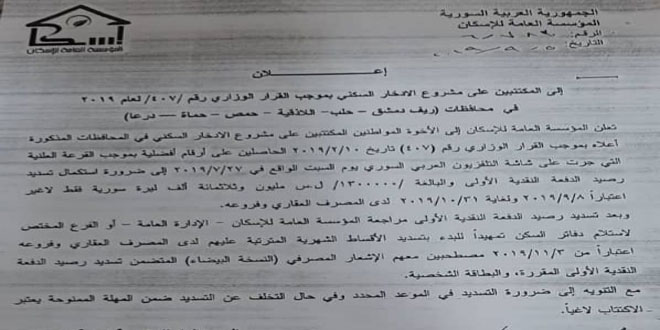 الجمهورية العربية السورية
المؤسسة العامة للإسكان
الرقم:
التاريخ: ٢٠١٩/٩/٥
إسكان
المؤسسة العامة للإسكان
إعـــــلان
إلى المكتتبين على مشروع الادخار السكني بموجب القرار الوزاري رقم /٤٠٧/ لعام ٢٠١٩
في محافظات (ريف دمشق – حلب – اللاذقية – حمص – حماة – درعا)
تعلن المؤسسة العامة للإسكان إلى الأخوة المواطنين المكتتبين على مشروع الادخار السكني في المحافظات المذكورة
أعلاه بموجب القرار الوزاري رقم (٤٠٧) تاريخ ٢٠١٩/٢/١٠ الحاصلين على أرقام أفضلية بموجب القرعة العلنية
التي جرت على شاشة التلفزيون العربي السوري يوم السبت الواقع في ٢٠١٩/٧/٢٧ إلى ضرورة استكمال تسديد
رصيد الدفعة النقدية الأولى والبالغة /١٣٠٠٠٠٠/ ل.س مليون وثلاثمائة ألف ليرة سورية فقط لاغير
اعتباراً ٢٠١٩/٩/٨ ولغاية ٢٠١٩/١٠/٣١ لدى المصرف العقاري وفروعه.
وبعد تسديد رصيد الدفعة النقدية الأولى مراجعة المؤسسة العامة للإسكان – الإدارة العامة – أو الفرع المختص
لاستلام دفاتر السكن تمهيداً للبدء بتسديد الأقساط الشهرية المترتبة عليهم لدى المصرف العقاري وفروعه
اعتباراً من ٢٠١٩/١١/٣ مصطحبين معهم الإشعار المصرفي (النسخة البيضاء) المتضمن تسديد رصيد الدفعة
النقدية الأولى المقررة، والبطاقة الشخصية.
مع التنويه إلى ضرورة التسديد في الموعد المحدد وفي حال التخلف عن التسديد ضمن المهلة الممنوحة يعتبر
الاكتتاب لاغياً.